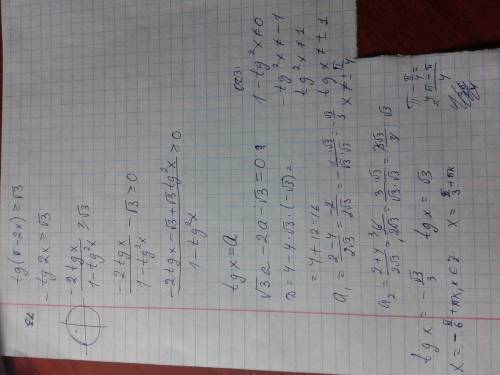 tg(π-2x) ≥ √3
-tg 2x ≥ √3
-2tgx / 1-tg²x ≥ √3
-2tgx / 1-tg²x - √3 ≥ 0
-2tgx-√3+√3tg²x / 1-tg²x ≥ 0
tg x = a
√3a - 2a - √3 = 0
D = 4-4·√3·(-√3) =
= 4+12=16
a₁ = 2-4 / 2√3 = -2 / 2√3 = - 1·√3 / √3·√3 = -√3 / 3
a₂ = 2+4 / 2√3 = 6 / 2√3 = 3·√3 / √3·√3 = 3√3 / 3 = √3
tg x = -√3 / 3 tg x = √3
x = -π/6 + πn, n∈Z x = π/3 + πn
ОДЗ:
1-tg²x≠0
-tg²x≠-1
tg²x≠1
tg x≠±1
x≠ π/4
π - π/4 =
4π-π / 4